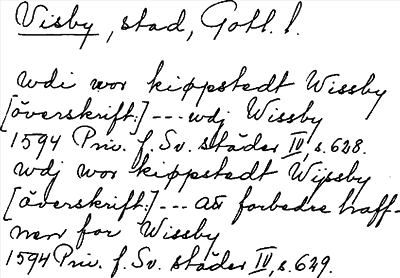 Visby, stad, Gotl. l.
wdi wor kiøpstedt Wissby
[överskift.] --- wdj Wissby
1594 Priv. f. Sv. städer IV, s. 628.
wdj wor kiøpstedt Wijsby
[överskrift.] --- att forbedre haff-
nenn for Wissby
1594 Priv. f. Sv. städer IV, s. 629.